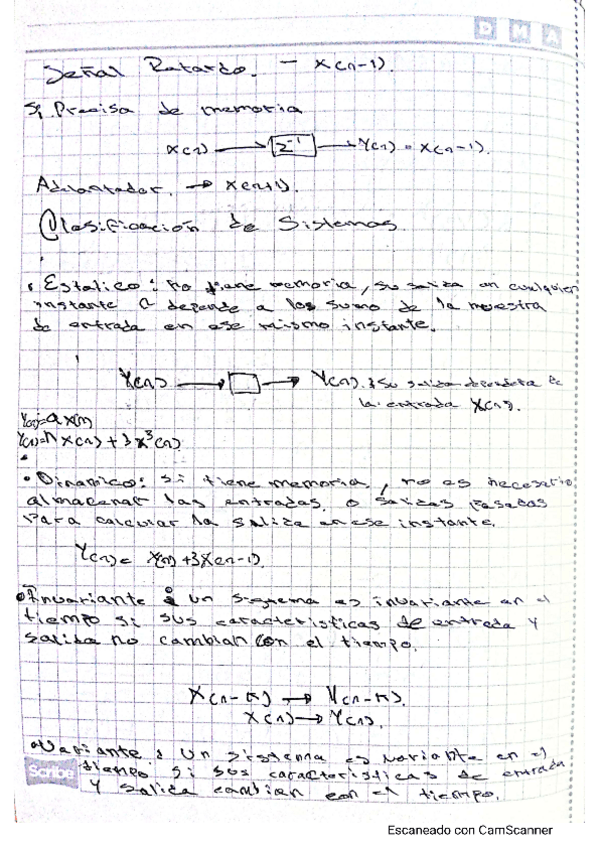 D M A
Señal Retardo. - x(n-1).
Si Precisa de memoria
x(n) → z⁻¹ → Y(n) = x(n-1).
Adelantador. → x(n+1).
Clasificación de Sistemas
• Estatico: no tiene memoria, su salida en cualquier
instante depende a los sumo de la muestra
de entrada en ese mismo instante.
Y(n) → → Y(n). Su salida dependera de
la entrada X(n).
Y(n)=a x(n)
Y(n)=n x(n) + 3x³(n)
• Dinamico: si tiene memoria, no es necesario
almacenar las entradas o salidas pasadas
Para calcular la salida en ese instante.
Y(n) = x(n) + 3x(n-1)
• Invariante: un sistema es invariante en el
tiempo si sus caracteristicas de entrada y
salida no cambian con el tiempo.
X(n-k) → Y(n-k).
X(n) → Y(n).
• Variante: un sistema es variante en el
tiempo si sus caracteristicas de entrada
y salida cambian con el tiempo.
Scribe
Escaneado con CamScanner